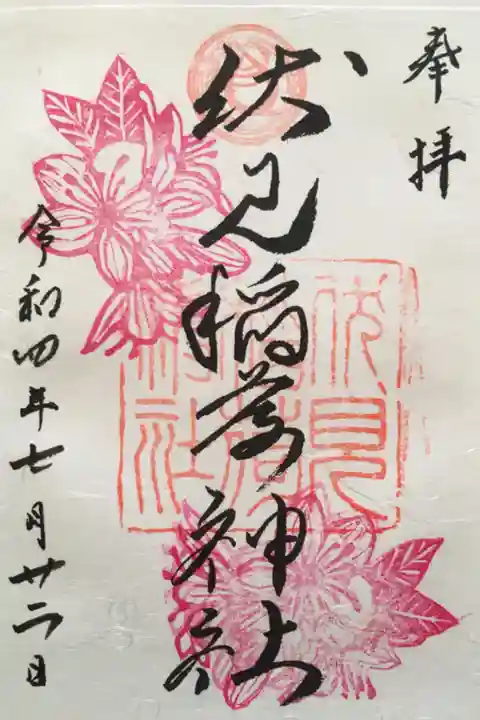 奉拝
伏見稲荷神社
伏見
稲荷
神社
令和四年七月廿二日